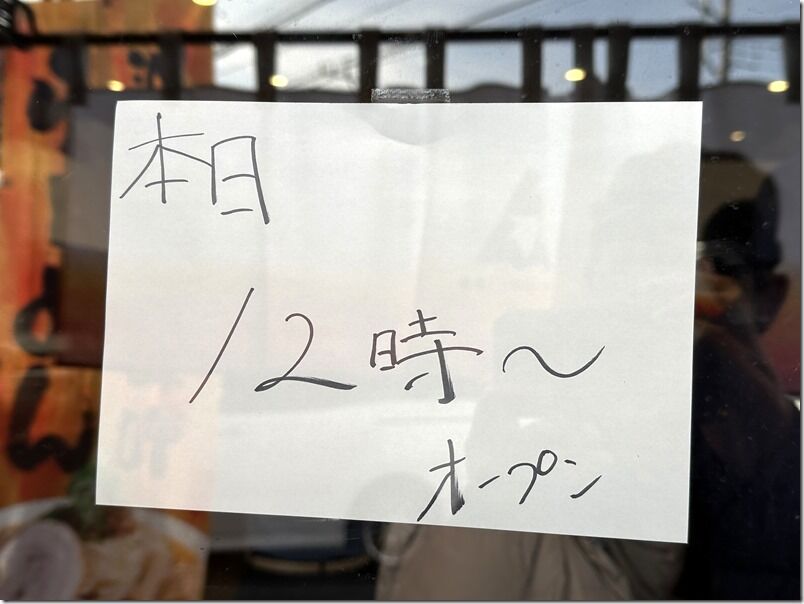 本日
12時～
オープン